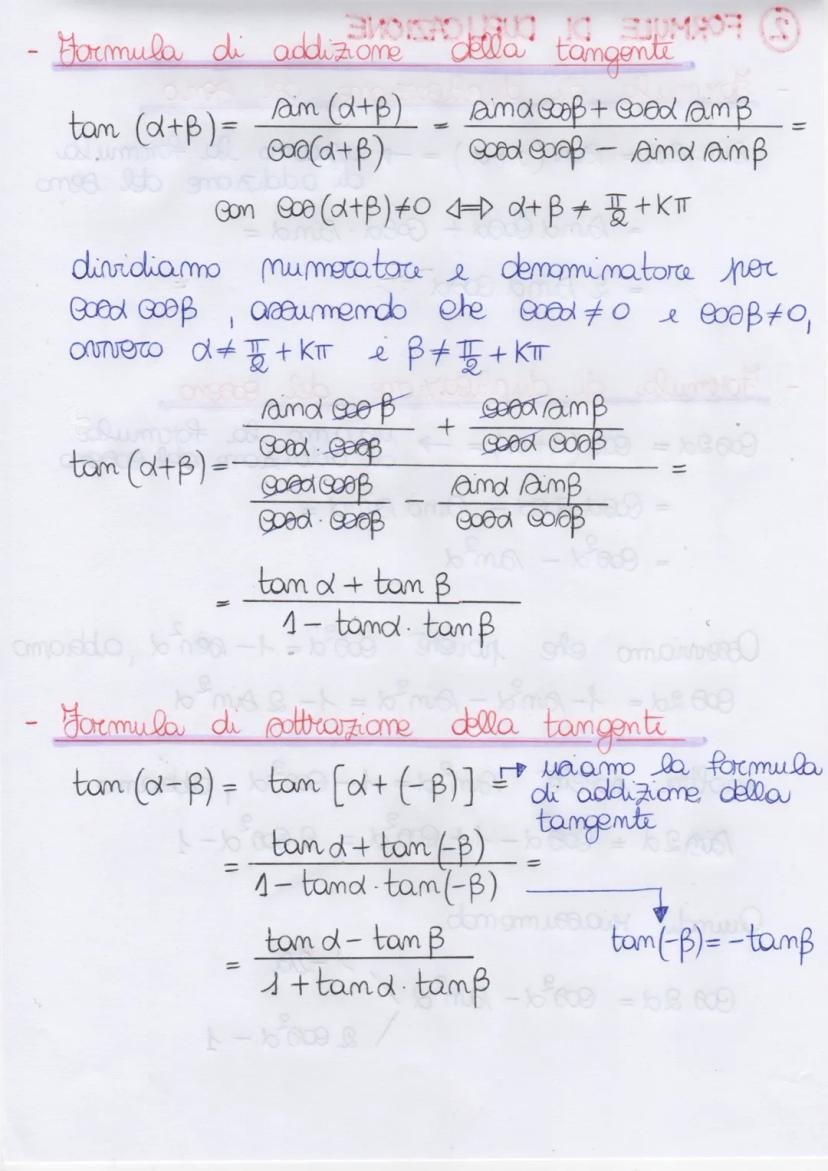 - Formula di addizione della tangente
tan (α+β) = sin (α+β) / cos(α+β) = sinα cosβ + cosα sinβ / cosα cosβ - sinα sinβ =
con cos(α+β)≠0 ⟺ α+β ≠ π/2 + Kπ
dividiamo numeratore e denominatore per
cosα cosβ , assumendo che cosα ≠ 0 e cosβ≠0,
ovvero α≠ π/2 + Kπ e β ≠ π/2 + Kπ
tan (α+β) = (sinα cosβ / cosα · cosβ + cosα sinβ / cosα cosβ) / (cosα cosβ / cosα · cosβ - sinα sinβ / cosα cosβ) =
= tan α + tan β / 1 - tanα · tanβ
- Formula di sottrazione della tangente
tan (α-β) = tan [α + (-β)] = ↦ usiamo la formula
di addizione della
tangente
= tan α + tan(-β) / 1 - tanα · tan(-β) =
tan(-β) = -tanβ
= tan α - tan β / 1 + tanα · tanβ